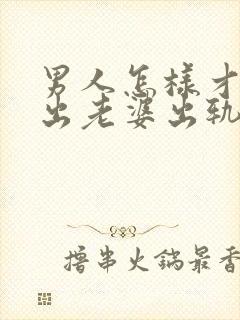 男人怎樣才
出老婆出轨
撸串火鍋最香